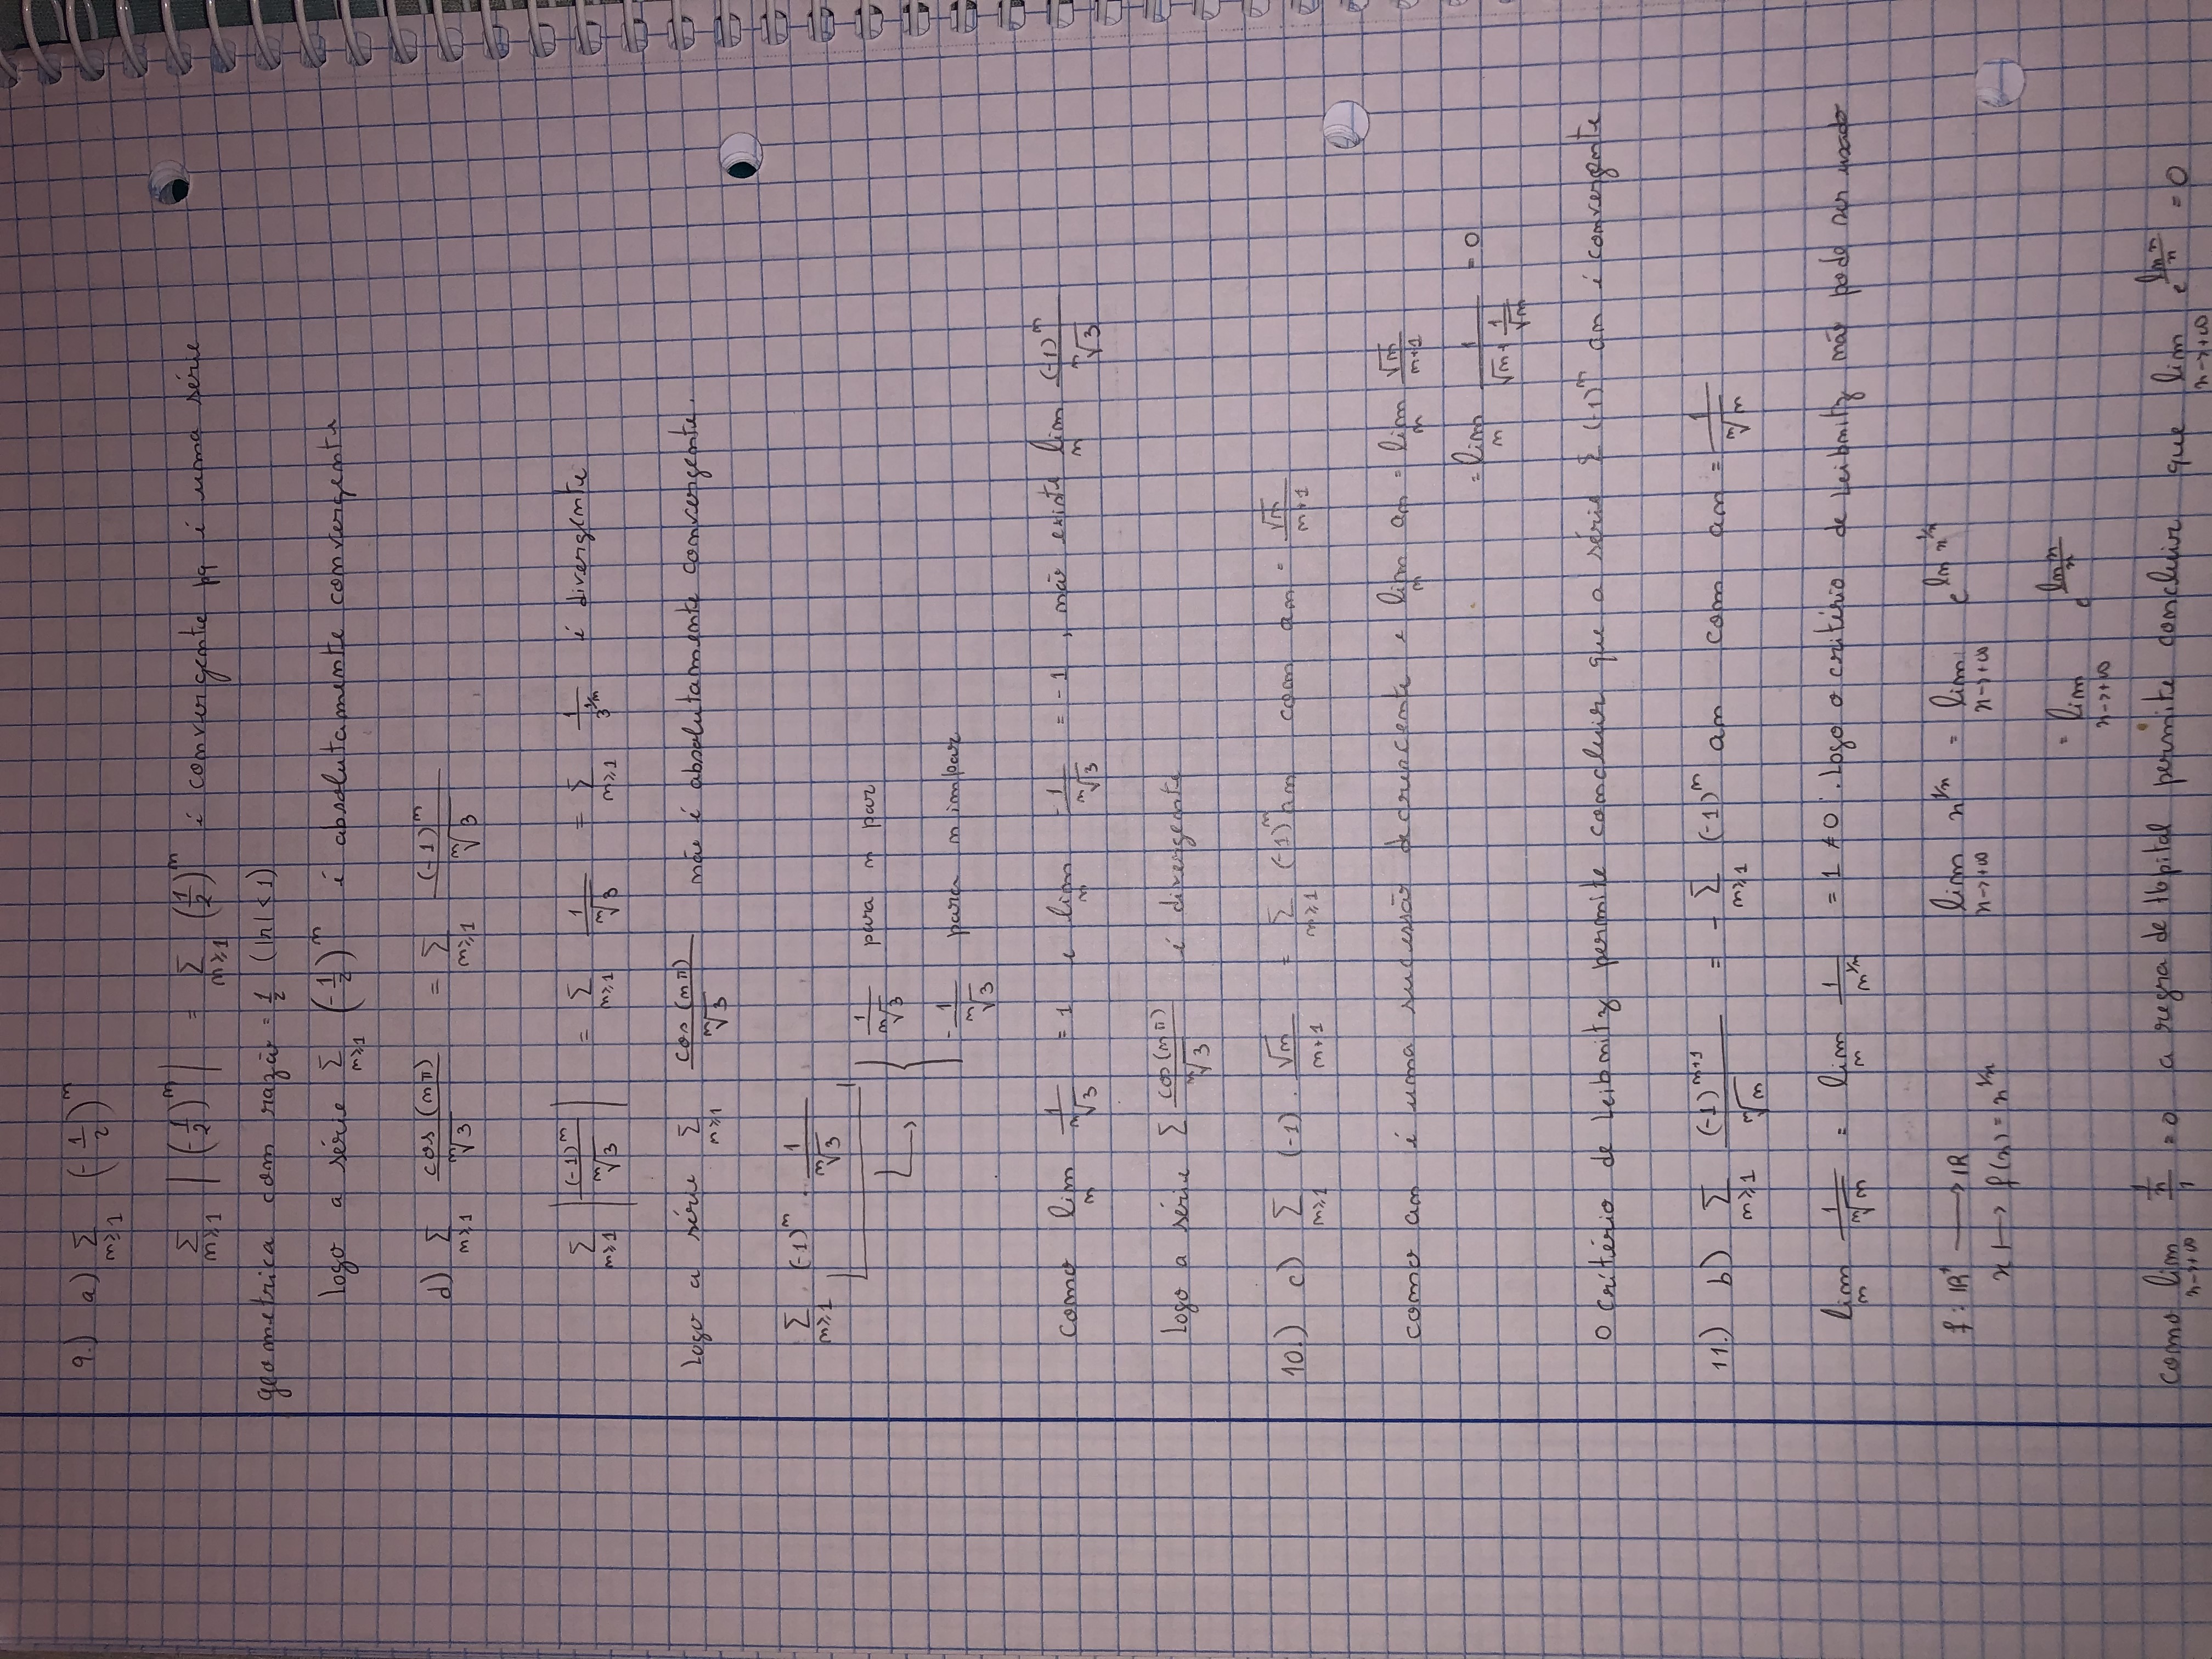 9.) a) ∑_{n≥1} (-1/2)^n
∑_{n≥1} |(-1/2)^n| = ∑_{n≥1} (1/2)^n é convergente pq é uma série
geometrica com razão = 1/2 (|r| < 1)
Logo a série ∑_{n≥1} (-1/2)^n é absolutamente convergente
d) ∑_{n≥1} cos(nπ)/ⁿ√3 = ∑_{n≥1} (-1)^n/ⁿ√3
∑_{n≥1} |(-1)^n/ⁿ√3| = ∑_{n≥1} 1/ⁿ√3 = ∑_{n≥1} 1/3^{1/n} é divergente
Logo a série ∑_{n≥1} cos(nπ)/ⁿ√3 não é absolutamente convergente.
∑_{n≥1} (-1)^n · 1/ⁿ√3
1/ⁿ√3 para n par
-1/ⁿ√3 para n impar
como lim_n 1/ⁿ√3 = 1 e lim_n -1/ⁿ√3 = -1, não existe lim_n (-1)^n/ⁿ√3
Logo a série ∑ cos(nπ)/ⁿ√3 é divergente
10.) c) ∑_{n≥1} (-1) · √n/(n+1) = ∑_{n≥1} (-1)^n an com an = √n/(n+1)
como an é uma sucessão decrescente e lim_n an = lim_n √n/(n+1)
= lim_n 1/(√n + 1/√n) = 0
O critério de Leibnitz permite concluir que a série ∑ (-1)^n an é convergente
11.) b) ∑_{n≥1} (-1)^{n+1}/ⁿ√n = - ∑_{n≥1} (-1)^n an com an = 1/ⁿ√n
lim_n 1/ⁿ√n = lim_n 1/n^{1/n} = 1 ≠ 0. Logo o critério de Leibnitz não pode ser usado
f: IR⁺ ⟶ IR lim_{x→+∞} x^{1/x} = lim_{x→+∞} e^{ln x^{1/x}}
x ⟼ f(x) = x^{1/x}
= lim_{x→+∞} e^{ln x/x}
como lim_{x→+∞} (1/x)/1 = 0 a regra de Hopital permite concluir que lim_{x→+∞} e^{ln x/x} = 0